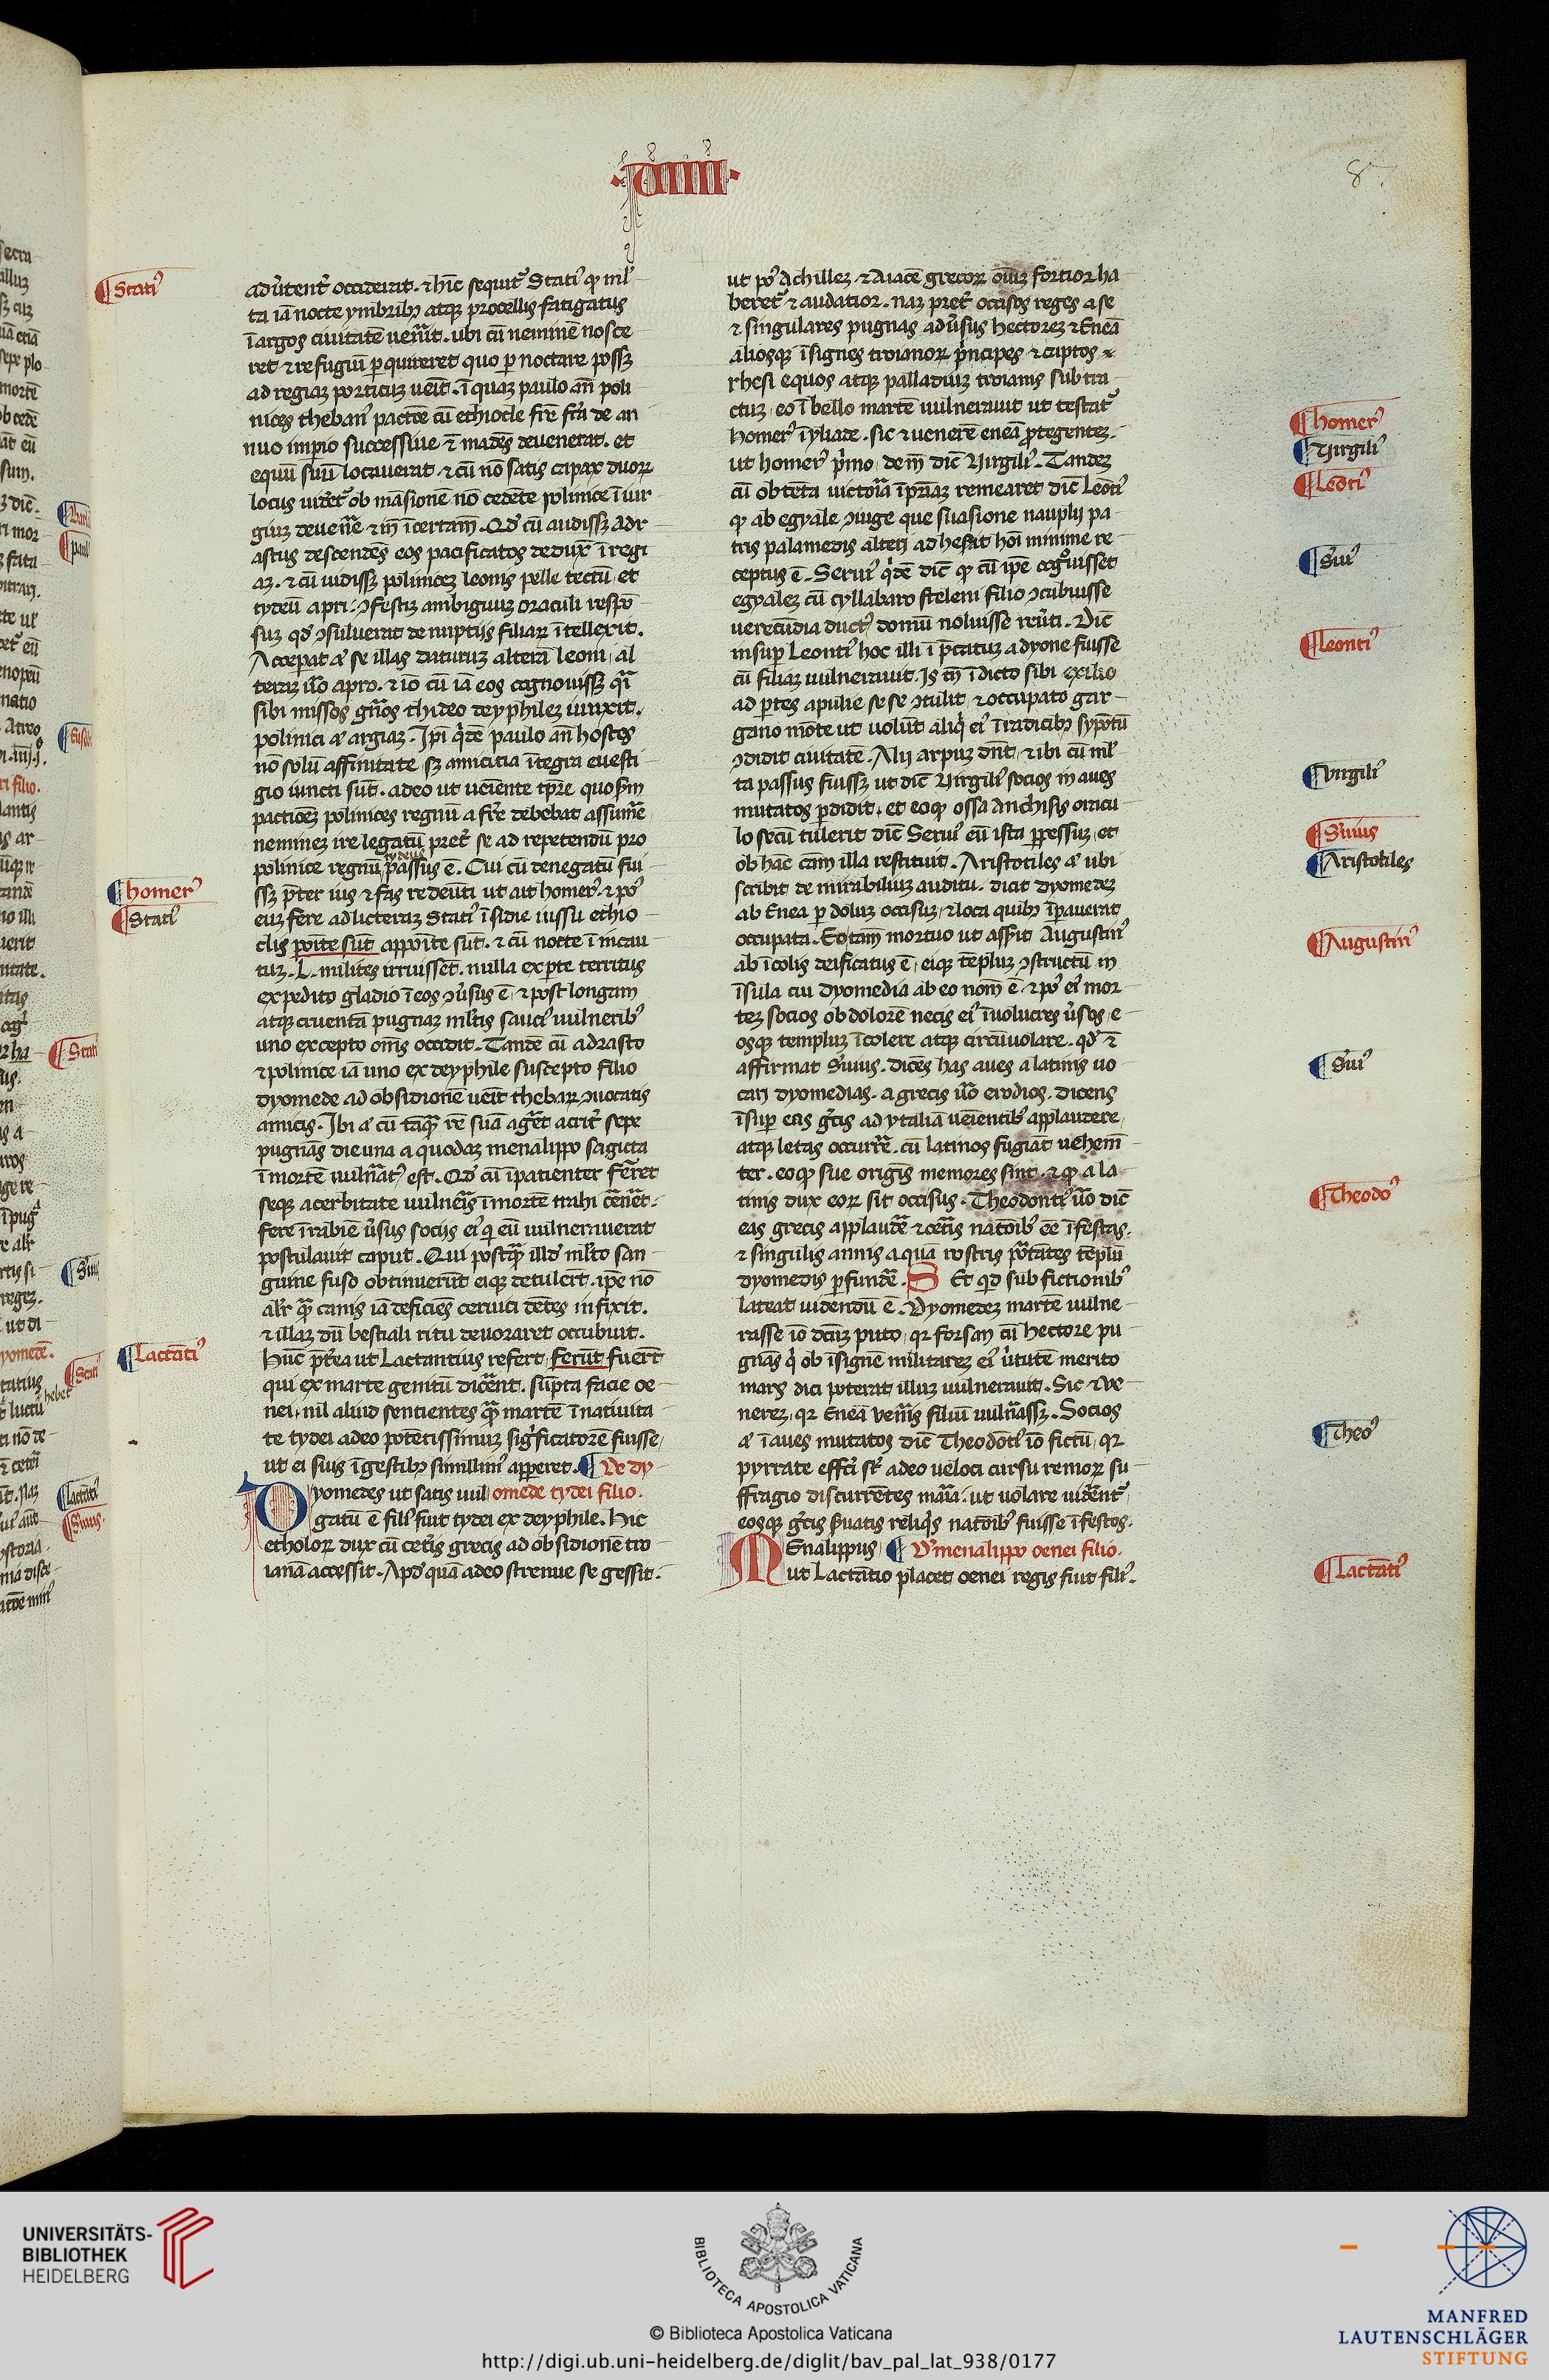 ·VIIII·
8
adūtent᷑ occideꝛat. ⁊ hīc sequit᷑ Statiꝰ qꝫ ml̕
ta iā nocte ymbribꝫ atqꝫ procellis fatigatus
ī argos ciuitatē uen̄it. ubi cū neminē nosce
ret ⁊ refugiū ꝑquireret quo ꝑnoctare possꝫ
ad regiaꝫ porticuꝫ ueīt. ī quaꝫ paulo an̄ poli
nices thebanꝰ pactōe cū ethiocle fr̄e ſc̄a de an
nuo impio successiue ī madēs deuenerat. et
equū suū locauerat ⁊ cū nō satis capax duoꝝ
locus uidēt᷑ ob māsionē nō cedēte polinice ī iur
giuꝫ deuenēe ⁊ in̄ īcertam̄. Qd̕ cū audissꝫ Adr
astus descendēs eos pacificatos deduxīt ī regi
aꝫ. ⁊ cū uidissꝫ poliniceꝫ leonis pelle tectū et
tydeū apri. ꝯfestiꝫ ambiguuꝫ oraculi respō
suꝫ qd̕ ꝯsuluerat de nuptijs filiaꝝ ītellexit.
Acceperat .n. se illas daturuꝫ alterā leoni al
teraꝫ u̕o apro. ⁊ iō cū iā eos cognouissꝫ q̄i
sibi missos gn̄os thideo deyphileꝫ iunxit.
polinici .n. argiaꝫ. Ipī q̄dē paulo an̄ hostes
nō solū affinitate sꝫ amicitia ītegra euesti
gio iuncti sūt. adeo ut ueīente tꝑre quo ſm̄
pactiōeꝫ polinices regnū a fr̄e debebat assumē
nemineꝫ ire legatū pret̕ se ad repetendū pro
polinice regnū tydeus passus ē. Cui cū denegatū fui
ssꝫ p̄ter ius ⁊ fas redeūti ut ait homerꝰ. ⁊ pꝰ
euꝫ fere ad licteraꝫ Statiꝰ īsidie iussu ethio
clis poite sūt apposite sūt. ⁊ cū nocte ī incau
tuꝫ .L. milites irruissēt. nulla ex parte territus
expedito gladio ī eos ꝯūsus ē ⁊ post longam
atqꝫ cruentā pugnaꝫ ml̕tis sauciꝰ uulneribꝰ
uno excepto om̄s occidit. Tandē cū adrasto
⁊ polinice iā uno ex deyphile suscepto filio
dyomede ad obsidionē ueīt thebaꝝ ꝯuocatis
amicis. Ibi .n. cū tāqꝫ rē suā ageret acrit̕ sepe
pugnās die una a quodaꝫ menalippo sagicta
ī mortē uuln̄atꝰ est. Qd̕ cū īpatienter ferret
seqꝫ acerbitate uulneīs ī mortē trahi cerneret.
fere ī rabiē ūsus socijs eiꝰ q̄ eū uulnerauerat
postulauit caput. Qui postqꝫ illd̕ ml̕to san
guine fuso obtinuerūt eiqꝫ detulerūt. ipē nō
alr̕ qꝫ canis iā deficiēs ceruici dētes infixit.
⁊ illaꝫ dū bestiali ritu deuoraret occubuit.
Hūc p̄terea ut Lactantius refert ferūt fuerūt
qui ex marte genitū dicerēt. sūpta facie oe
nei. nil aliud sentientes qꝫ martē ī natiuita
te tydei adeo potētissimuꝫ sigficatorē fuisse
ut ei suis ī gestibꝫ simillimꝰ apperet. De dy
Dyomedes ut satis uul omede tydei filio.
gatū ē filꝰ fuit tydei ex deyphile. Hic
etholoꝝ dux cū cetis grecis ad obsidionē tro
ianā accessit. Apd̕ quā adeo strenue se gessit.
ut pꝰ Achilleꝫ ⁊ Aiacē grecoꝝ oīuꝫ fortior ha
beret᷑ ⁊ audatior. naꝫ pret̕ occisos reges a se
⁊ singulares pugnas adūsus hectoreꝫ ⁊ Eneā
aliosqꝫ īsignes troianoꝝ p̄ncipes ⁊ captos
rhesi equos atqꝫ palladiuꝫ troianis subtra
ctuꝫ eo ī bello martē uulnerauit ut testat᷑
homerꝰ ī yliade. sic ⁊ uenerē eneā protegenteꝫ.
ut homerꝰ p̄mo. dem̄ dic̄ Virgiliꝰ. Tandeꝫ
cū obtenta uictoīa ī p̄iaꝫ remearet dic̄ Leōtiꝰ
qꝫ ab egyale ꝯiuge que suasione nauplij pa
tris palamedis alteri adhesit hoī minime re
ceptus ē. Seruiꝰ q̄dē dic̄ qꝫ cū ipē cognouisset
egyaleꝫ cū cyllabaro steleni filio ꝯcubuisse
uerecūdia ductꝰ domū noluisse reūti. Dic̄
insuꝑ Leontiꝰ hoc illi ī p̄catuꝫ a dyone fuisse
cū filiaꝫ uulnerauit. Is tn̄ īdicto sibi exilio
ad ꝑtes apulie sese ꝯtulit. ⁊ occupato gar
gano mōte ut uolūt aliq̄ eiꝰ ī radicibꝫ sypōtū
ꝯdidit ciuitatē. Alij arpuꝫ dn̄t. ⁊ ibi cū ml̕
ta passus fuissꝫ ut dic̄ Virgiliꝰ socios in aues
mutatos ꝑdidit. et eoqꝫ ossa Anchisis oracu
lo secū tulerit dic̄ Seruiꝰ eū ista ꝑpessuꝫ et
ob hāc cam̄ illa restituit. Aristotiles .n. ubi
scribit de mirabiliuꝫ auditu. dicit dyomedeꝫ
ab Enea ꝑ doluꝫ occisuꝫ ⁊ loca quibꝫ īꝑauerat
occupata. Eo tam̄ mortuo ut asserit Augustinꝰ
ab īcolis deificatus ē. eiqꝫ tēpluꝫ ꝯstructū in
īsula cui dyomedia ab eo nom̄ ē. ⁊ pꝰ eiꝰ mor
teꝫ socios ob dolorē necis eiꝰ ī uolucres ūsos. e
osqꝫ templuꝫ īcolere atqꝫ circūuolare. qd̕ ⁊
affirmat Seruius. dicēs has aues a latinis uo
cari dyomedias. a grecis u̕o erodios. dicens
īsuꝑ eas gr̄cis ad ytaliā ueīentibꝰ applaudere,
atqꝫ letas occurrē. cū latinos fugiāt uehem̄
ter. eoqꝫ sue origīs memores sint. ⁊ qꝫ a la
tinis dux eoꝝ sit occisus. Theodontiꝰ u̕o dic̄
eas grecis applaudē ⁊ ceteīs natōibꝰ eē īfestas.
⁊ singulis annis aquā rostris portātes tēplū
dyomedis ꝑfundē. S Et qd̕ sub fictionibꝰ
lateat uidendū ē. Dyomedeꝫ martē uulne
rasse iō dcūꝫ puto. qꝛ forsan cū hectore pu
gnās q̄ ob īsignē militareꝫ eiꝰ ūtutē merito
mars dici poterat illuꝫ uulnerauit. Sic ⁊ ue
nereꝫ. qꝛ Eneā veneīs filiū uuln̄assꝫ. Socios
.n. ī aues mutatos dic̄ Theodōtiꝰ iō fictū. qꝛ
pyrrate effcī sr̄ adeo ueloci cursu remoꝝ su
ffragio discurrētes maīa. ut uolare uidērent᷑.
eosqꝫ gr̄cis seruatis reliq̄s natōibꝰ fuisse īfestos.
MEnalippus, De menalippo oenei filio.
ut Lactātio placet oenei regis fuit filiꝰ.
Statiꝰ
homerꝰ
Statiꝰ
Lactātiꝰ
homerꝰ
Virgiliꝰ
Leōtiꝰ
Sꝰuiꝰ
Leontiꝰ
Virgiliꝰ
Sꝰuius
Aristotiles
Augustinꝰ
Sꝰuiꝰ
Theodoꝰ
Theoꝰ
Lactātiꝰ
UNIVERSITÄTS-
BIBLIOTHEK
HEIDELBERG
BIBLIOTECA APOSTOLICA VATICANA
© Biblioteca Apostolica Vaticana
http://digi.ub.uni-heidelberg.de/diglit/bav_pal_lat_938/0177
MANFRED
LAUTENSCHLÄGER
STIFTUNG